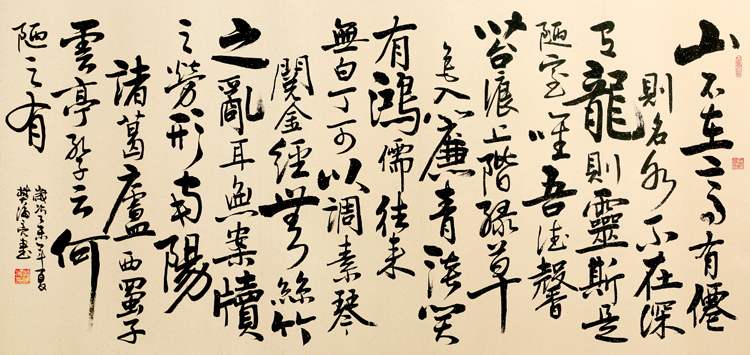 山不在高有僊
則名水不在深
有龍則靈斯是
陋室唯吾德馨
苔痕上階緑草
色入簾青談笑
有鴻儒往來
無白丁可以調素琴
閱金經無絲竹
之亂耳無案牘
之勞形南陽
諸葛廬西蜀子
雲亭孔云何
陋之有
歲次乙未年夏
樊海亮書